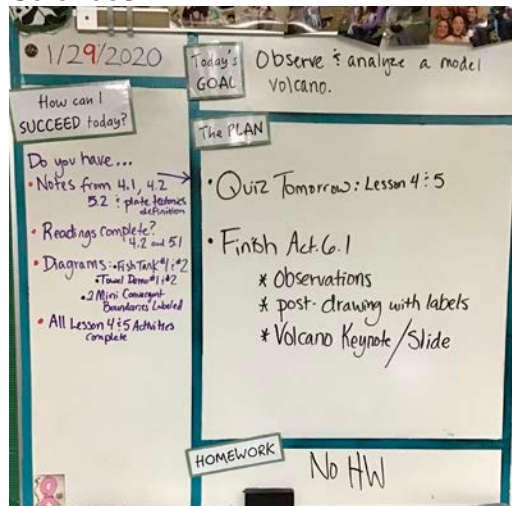 1/29/2020
Today's
GOAL
Observe & analyze a model
volcano.
How can I
SUCCEED today?
Do you have...
• Notes from 4.1, 4.2
5.2 & plate tectonics
definition
• Readings complete?
4.2 and 5.1
• Diagrams: • Fish Tank #1 & #2
• Towel Demo #1 & #2
• 2 Mini Convergent
Boundaries Labeled
• All Lesson 4 & 5 Activities
complete
The PLAN
• Quiz Tomorrow: Lesson 4 & 5
• Finish Act. 6.1
* Observations
* post-drawing with labels
* Volcano Keynote/Slide
HOMEWORK
No HW